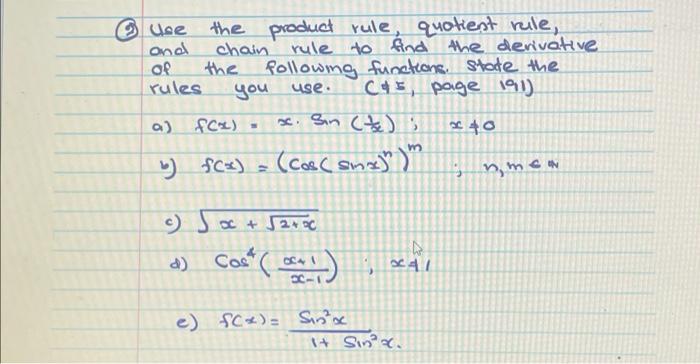 ② Use the product rule, quotient rule,
and chain rule to find the derivative
of the following functions. State the
rules you use. (#5, page 191)
a) f(x) = x. Sin (1/x) ; x ≠ 0
b) f(x) = (Cos(sinx)ⁿ)ᵐ ; n, m ∈ ℕ
c) √(x + √(2+x))
d) Cos⁴ ((x+1)/(x-1)) ; x ≠ 1
e) f(x) = Sin²x / (1 + Sin²x).